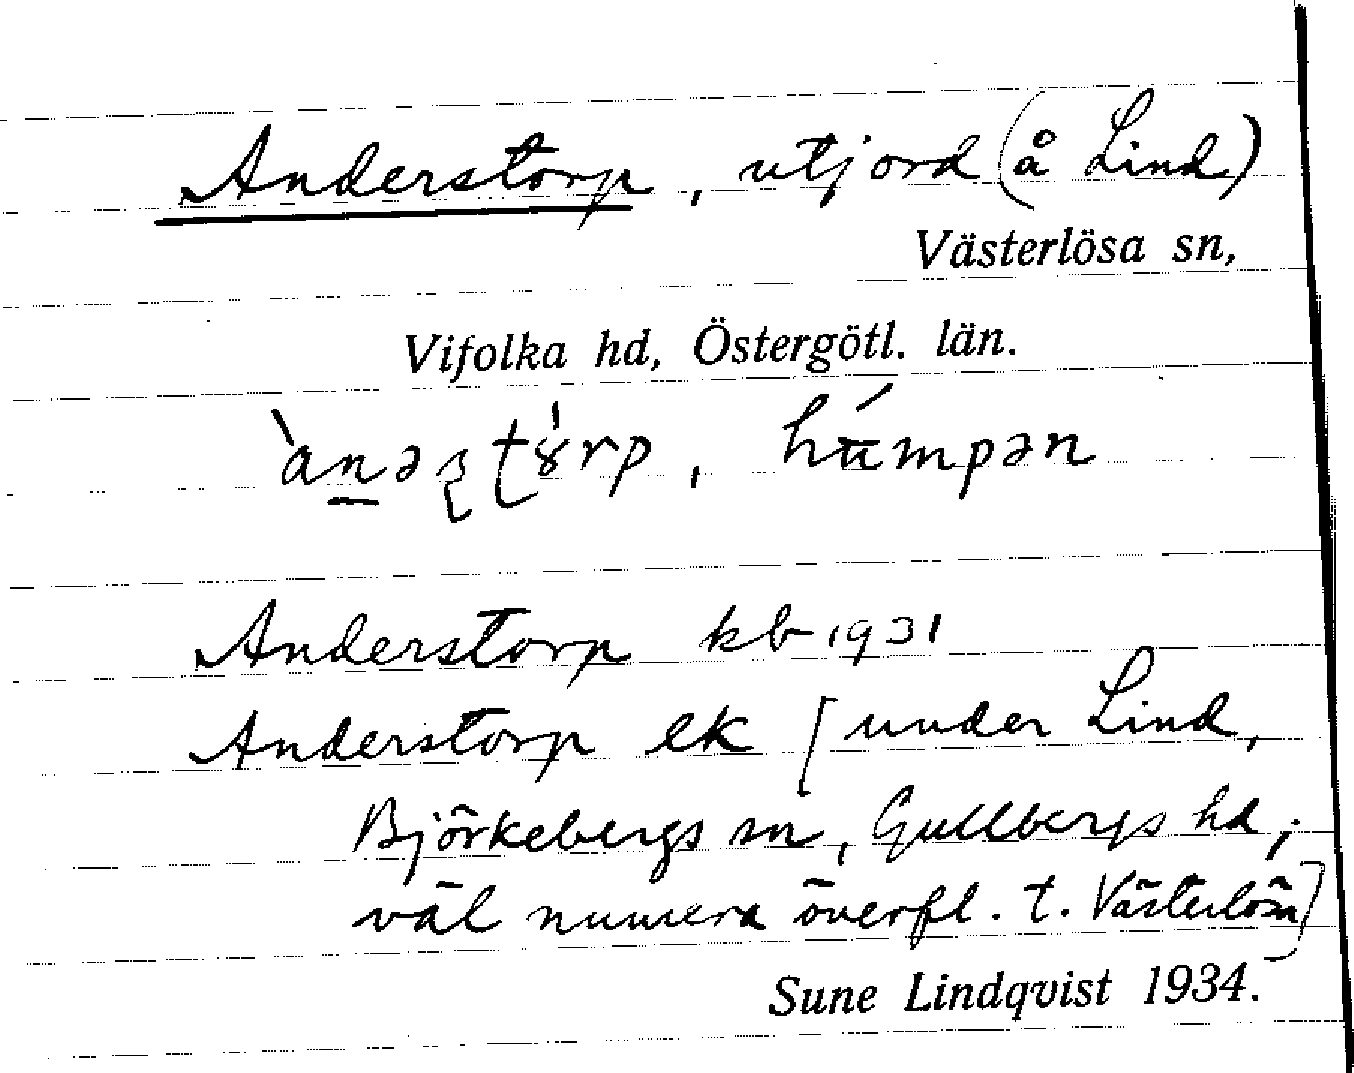 Anderstorp, utjord (å Lind)
Västerlösa sn,
Vifolka hd, Östergötl. län.
húmpən
Anderstorp kb 1931
Anderstorp ek [under Lind,
Björkebergs sn, Gullbergs hd;
väl numera överfl. t. Västerlösa]
Sune Lindqvist 1934.